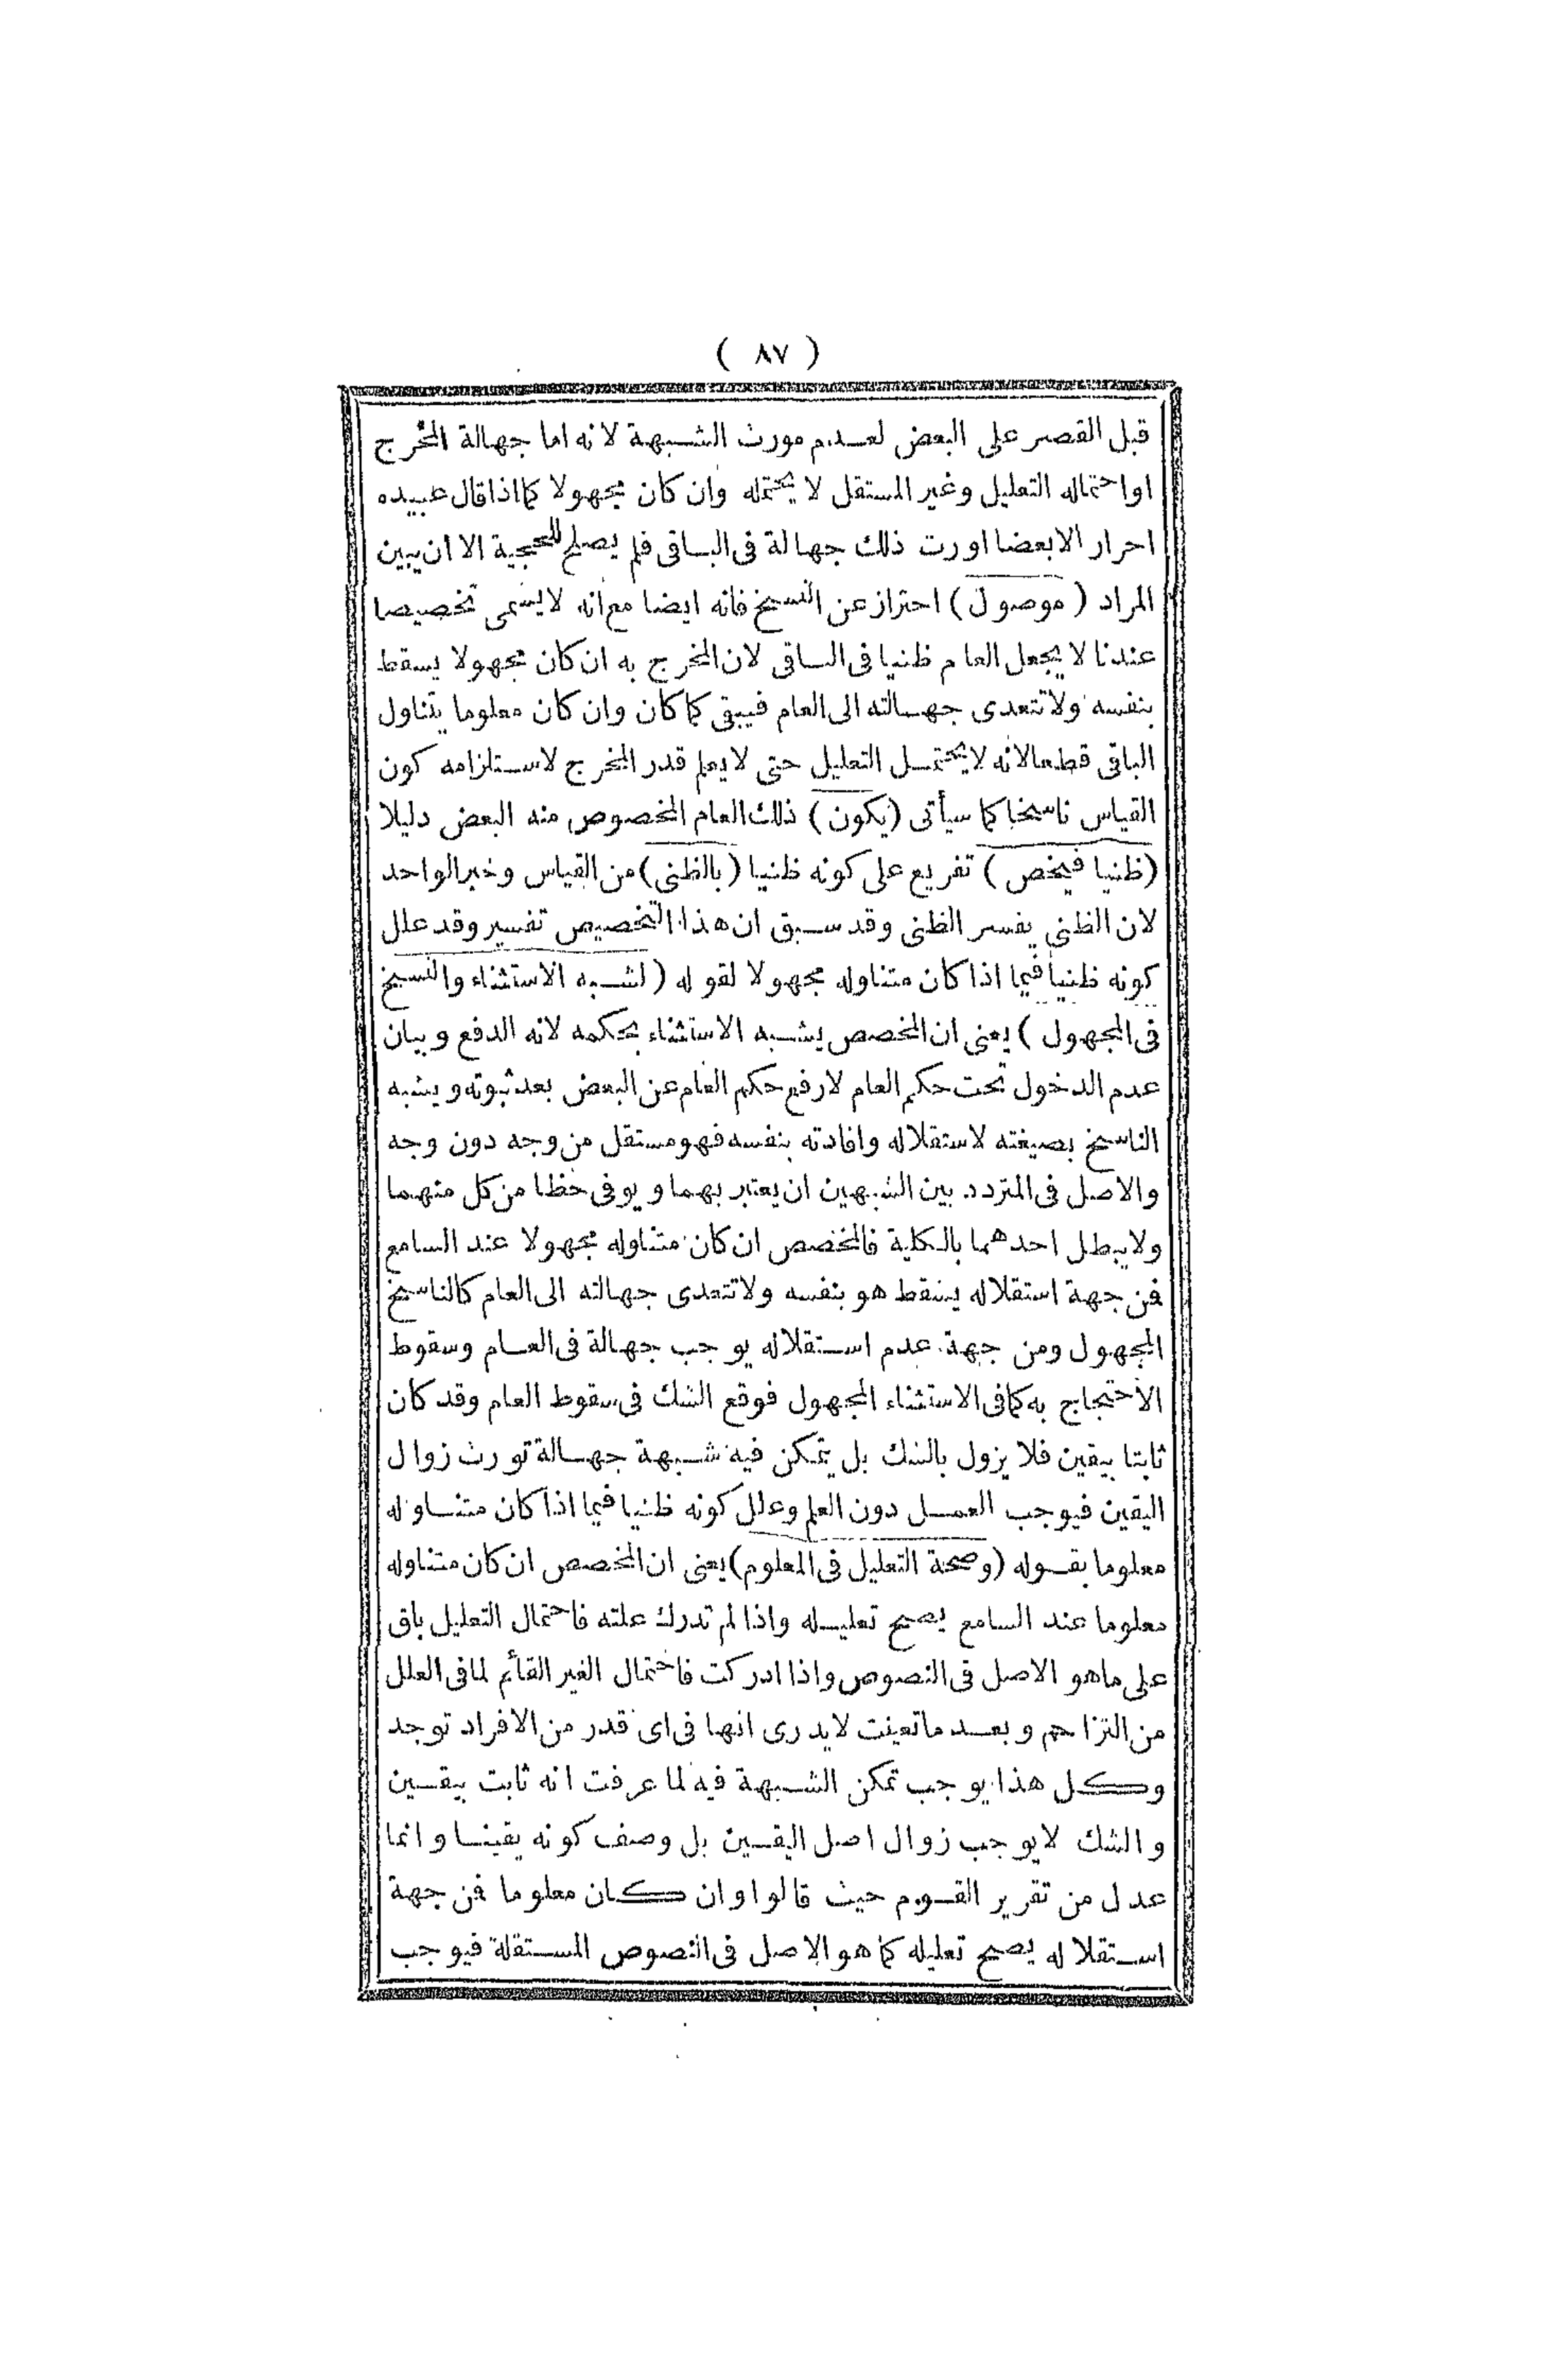 ( ٨٧ )
قبل القصر على البعض لعدم مورث الشبهة لانه اما جهالة المخرج
او احتماله التعليل وغير المستقل لا يحتمله وان كان مجهولا كما اذا قال عبيده
احرار الا بعضا اورث ذلك جهالة فى الباقى فلم يصلح للحجية الا ان يبين
المراد ( موصول ) احتراز عن النسخ فانه ايضا مع انه لا يسمى تخصيصا
عندنا لا يجعل العام ظنيا فى الباقى لان المخرج به ان كان مجهولا يسقط
بنفسه ولا تتعدى جهالته الى العام فيبقى كما كان وان كان معلوما يتناول
الباقى قطعا لانه لا يحتمل التعليل حتى لا يعلم قدر المخرج لاستلزامه كون
القياس ناسخا كما سيأتى (يكون) ذلك العام المخصوص منه البعض دليلا
(ظنيا فيخص ) تفريع على كونه ظنيا (بالظنى) من القياس وخبر الواحد
لان الظنى يفسر الظنى وقد سبق ان هذا التخصيص تفسير وقد علل
كونه ظنيا فيما اذا كان متناوله مجهولا لقوله (لشبه الاستثناء والنسخ
فى المجهول ) يعنى ان المخصص يشبه الاستثناء بحكمه لانه الدفع وبيان
عدم الدخول تحت حكم العام لا رفع حكم العام عن البعض بعد ثبوته ويشبه
الناسخ بصيغته لاستقلاله وافادته بنفسه فهو مستقل من وجه دون وجه
والاصل فى المتردد بين الشبهين ان يعتبر بهما ويوفى حظا من كل منهما
ولا يبطل احدهما بالكلية فالمخصص ان كان متناوله مجهولا عند السامع
فمن جهة استقلاله يسقط هو بنفسه ولا تتعدى جهالته الى العام كالناسخ
المجهول ومن جهة عدم استقلاله يوجب جهالة فى العام وسقوط
الاحتجاج به كما فى الاستثناء المجهول فوقع الشك فى سقوط العام وقد كان
ثابتا بيقين فلا يزول بالشك بل يتمكن فيه شبهة جهالة تورث زوال
اليقين فيوجب العمل دون العلم وعلل كونه ظنيا فيما اذا كان متناوله
معلوما بقوله (وصحة التعليل فى المعلوم) يعنى ان المخصص ان كان متناوله
معلوما عند السامع يصح تعليله واذا لم تدرك علته فاحتمال التعليل باق
على ماهو الاصل فى النصوص واذا ادركت فاحتمال الغير القائم لما فى العلل
من التزاحم وبعد ماتعينت لا يدرى انها فى اى قدر من الافراد توجد
وكل هذا يوجب تمكن الشبهة فيه لما عرفت انه ثابت بيقين
والشك لا يوجب زوال اصل اليقين بل وصف كونه يقينا وانما
عدل من تقرير القوم حيث قالوا وان كان معلوما فمن جهة
استقلاله يصح تعليله كما هو الاصل فى النصوص المستقلة فيوجب